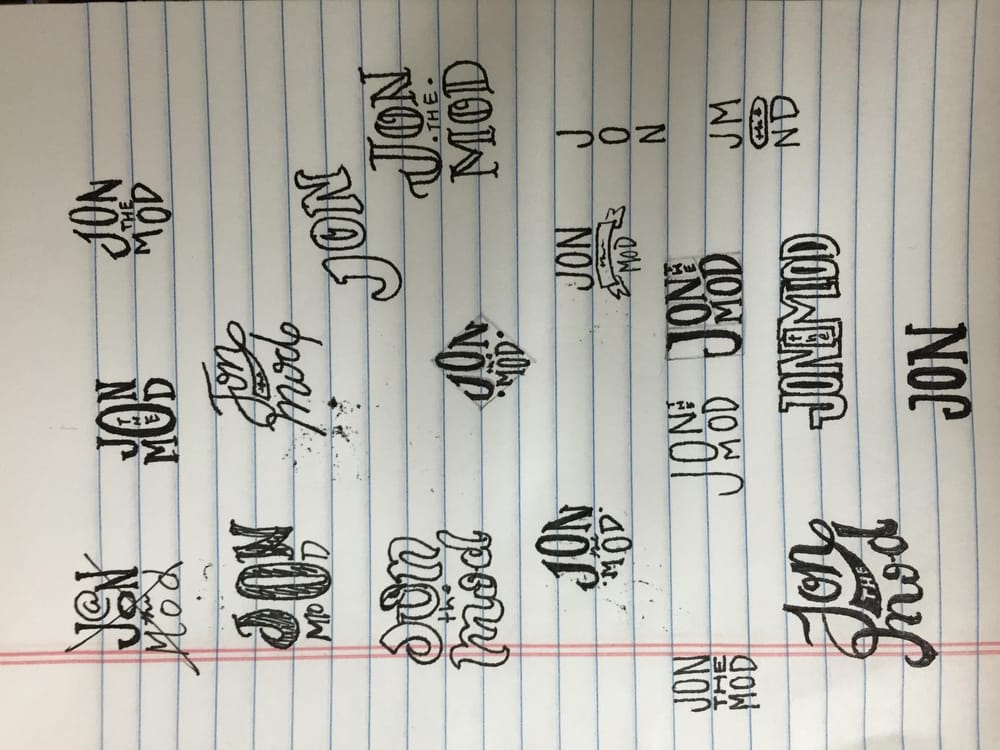 J@N
JON
the
Mod
JON
THE
MOD
JON
THE
MOD
JON
MOD
Jon
the
mod
JON
Jon
the
mod
JON
the
.MOD.
JON
.THE.
MOD
JON
the
.MOD.
JON
the
MOD
J
O
N
JON
THE
MOD
JON THE
MOD
JON THE
MOD
JM
the
ND
Jon
THE
mod
JON the MOD
JON